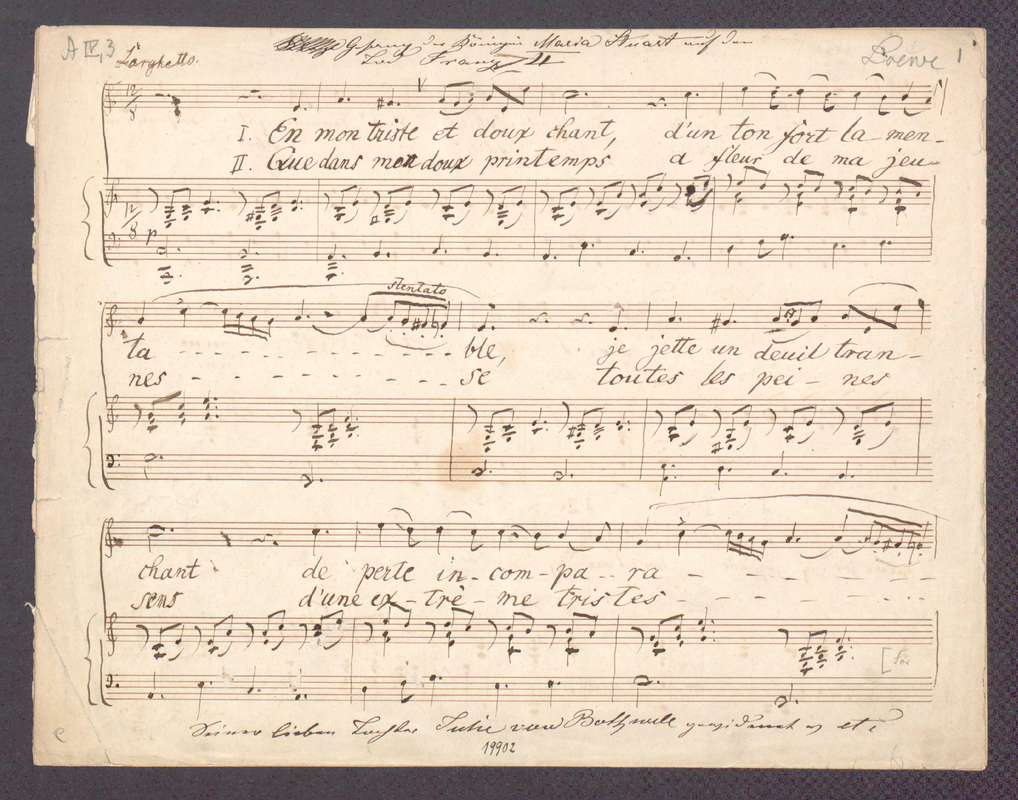 A IV, 3
Gesang der Königin Maria Stuart auf den
Tod Franz II
Loewe 1
Larghetto.
12/8
I. En mon triste et doux chant, d'un ton fort la-men-
II. Que dans mon doux printemps a fleur de ma jeu-
12/8
p
stentato
ta - - - - - - - - - - - - ble, je jette un deuil tran-
nes - - - - - - - - - - - - se toutes les pei - nes
chant de perte in-com-pa-ra - - - - - -
sens d'une ex-trè-me tristes - - - - - -
Seiner lieben Tochter Julie von Bothwell
19902